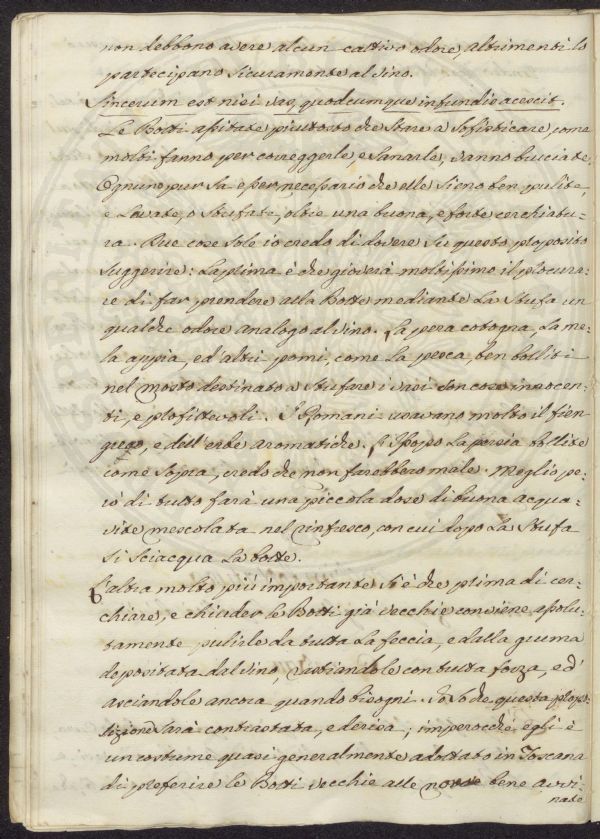 non debbono avere alcun cattivo odore, altrimenti lo
partecipano sicuramente al vino.
Sincerum est nisi vas, quodcumque infundis acescit.
Le Botti asfitate piuttosto che stare a sofisticare, come
molti fanno per correggerle, e sanarle, vanno bruciate.
Ognuno pur sa esser necessario che elle sieno ben pulite,
e Lavate, o Stufate, oltre una buona, e forte cerchiatu-
ra. Due cose sole io credo di dovere su questo proposito
suggerire: La prima è che gioverà moltissimo il procura-
re di far prendere alla Botte mediante La Stufa un
qualche odore analogo al vino. La pera cotogna, La me-
la appia, ed altri pomi, come La pesca, ben bolliti
nel mosto destinato a stufare i vasi son cose innocen-
ti, e profittevoli. I Romani usavano molto il fien
greco, e dell'erbe aromatiche. L'Isopo La persia bollite
come sopra, credo che non farebbero male. Meglio pe-
rò di tutto farà una piccola dose di buona acqua-
vite mescolata nel rinfresco, con cui dopo La Stufa
si sciacqua La botte.
L'altra molto più importante si è che prima di cer-
chiare, e chiuder le Botti già vecchie conviene assolu-
tamente pulirle da tutta La feccia, e dalla gruma
depositata dal vino, rastiandole con tutta forza, ed
asciandole ancora quando bisogni. Io so che questa propo-
sizione sarà contrastata, e derisa; imperocché egli è
un costume quasi generalmente adottato in Toscana
di preferire le Botti vecchie alle nuove bene avvi-
nate